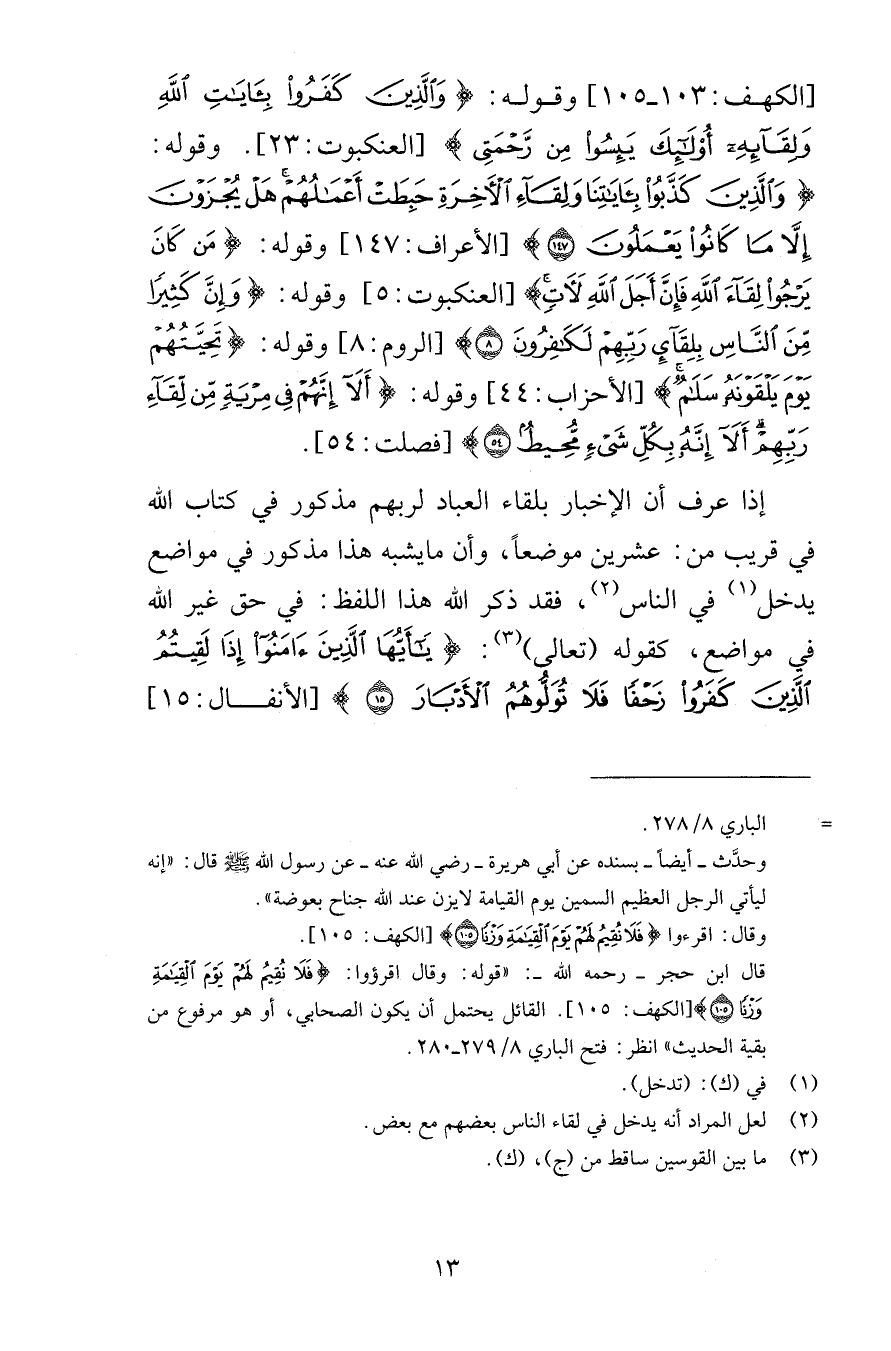 [الكهف: ١٠٣ـ١٠٥] وقوله: ﴿ وَٱلَّذِينَ كَفَرُوا۟ بِـَٔايَـٰتِ ٱللَّهِ
وَلِقَآئِهِۦٓ أُو۟لَـٰٓئِكَ يَئِسُوا۟ مِن رَّحْمَتِى ﴾ [العنكبوت: ٢٣]. وقوله:
﴿ وَٱلَّذِينَ كَذَّبُوا۟ بِـَٔايَـٰتِنَا وَلِقَآءِ ٱلْـَٔاخِرَةِ حَبِطَتْ أَعْمَـٰلُهُمْ ۚ هَلْ يُجْزَوْنَ
إِلَّا مَا كَانُوا۟ يَعْمَلُونَ ١٤٧ ﴾ [الأعراف: ١٤٧] وقوله: ﴿ مَن كَانَ
يَرْجُوا۟ لِقَآءَ ٱللَّهِ فَإِنَّ أَجَلَ ٱللَّهِ لَـَٔاتٍ ۚ﴾ [العنكبوت: ٥] وقوله: ﴿ وَإِنَّ كَثِيرًا
مِّنَ ٱلنَّاسِ بِلِقَآئِ رَبِّهِمْ لَكَـٰفِرُونَ ٨﴾ [الروم: ٨] وقوله: ﴿ تَحِيَّتُهُمْ
يَوْمَ يَلْقَوْنَهُۥ سَلَـٰمٌ ۚ﴾ [الأحزاب: ٤٤] وقوله: ﴿ أَلَآ إِنَّهُمْ فِى مِرْيَةٍ مِّن لِّقَآءِ
رَبِّهِمْ ۗ أَلَآ إِنَّهُۥ بِكُلِّ شَىْءٍ مُّحِيطٌۢ ٥٤﴾ [فصلت: ٥٤].
إذا عرف أن الإخبار بلقاء العباد لربهم مذكور في كتاب الله
في قريب من: عشرين موضعاً، وأن مايشبه هذا مذكور في مواضع
يدخل(١) في الناس(٢)، فقد ذكر الله هذا اللفظ: في حق غير الله
في مواضع، كقوله (تعالى)(٣): ﴿ يَـٰٓأَيُّهَا ٱلَّذِينَ ءَامَنُوٓا۟ إِذَا لَقِيتُمُ
ٱلَّذِينَ كَفَرُوا۟ زَحْفًا فَلَا تُوَلُّوهُمُ ٱلْأَدْبَارَ ١٥ ﴾ [الأنفال: ١٥]
= الباري ٨/ ٢٧٨.
وحدَّث ـ أيضاً ـ بسنده عن أبي هريرة ـ رضي الله عنه ـ عن رسول الله ﷺ قال: «إنه
ليأتي الرجل العظيم السمين يوم القيامة لايزن عند الله جناح بعوضة».
وقال: اقرءوا ﴿ فَلَا نُقِيمُ لَهُمْ يَوْمَ ٱلْقِيَـٰمَةِ وَزْنًا ١٠٥﴾ [الكهف: ١٠٥].
قال ابن حجر ـ رحمه الله ـ: «قوله: وقال اقرؤوا: ﴿ فَلَا نُقِيمُ لَهُمْ يَوْمَ ٱلْقِيَـٰمَةِ
وَزْنًا ١٠٥﴾[الكهف: ١٠٥]. القائل يحتمل أن يكون الصحابي، أو هو مرفوع من
بقية الحديث» انظر: فتح الباري ٨/ ٢٧٩ـ٢٨٠.
(١) في (ك): (تدخل).
(٢) لعل المراد أنه يدخل في لقاء الناس بعضهم مع بعض.
(٣) ما بين القوسين ساقط من (ج)، (ك).
١٣